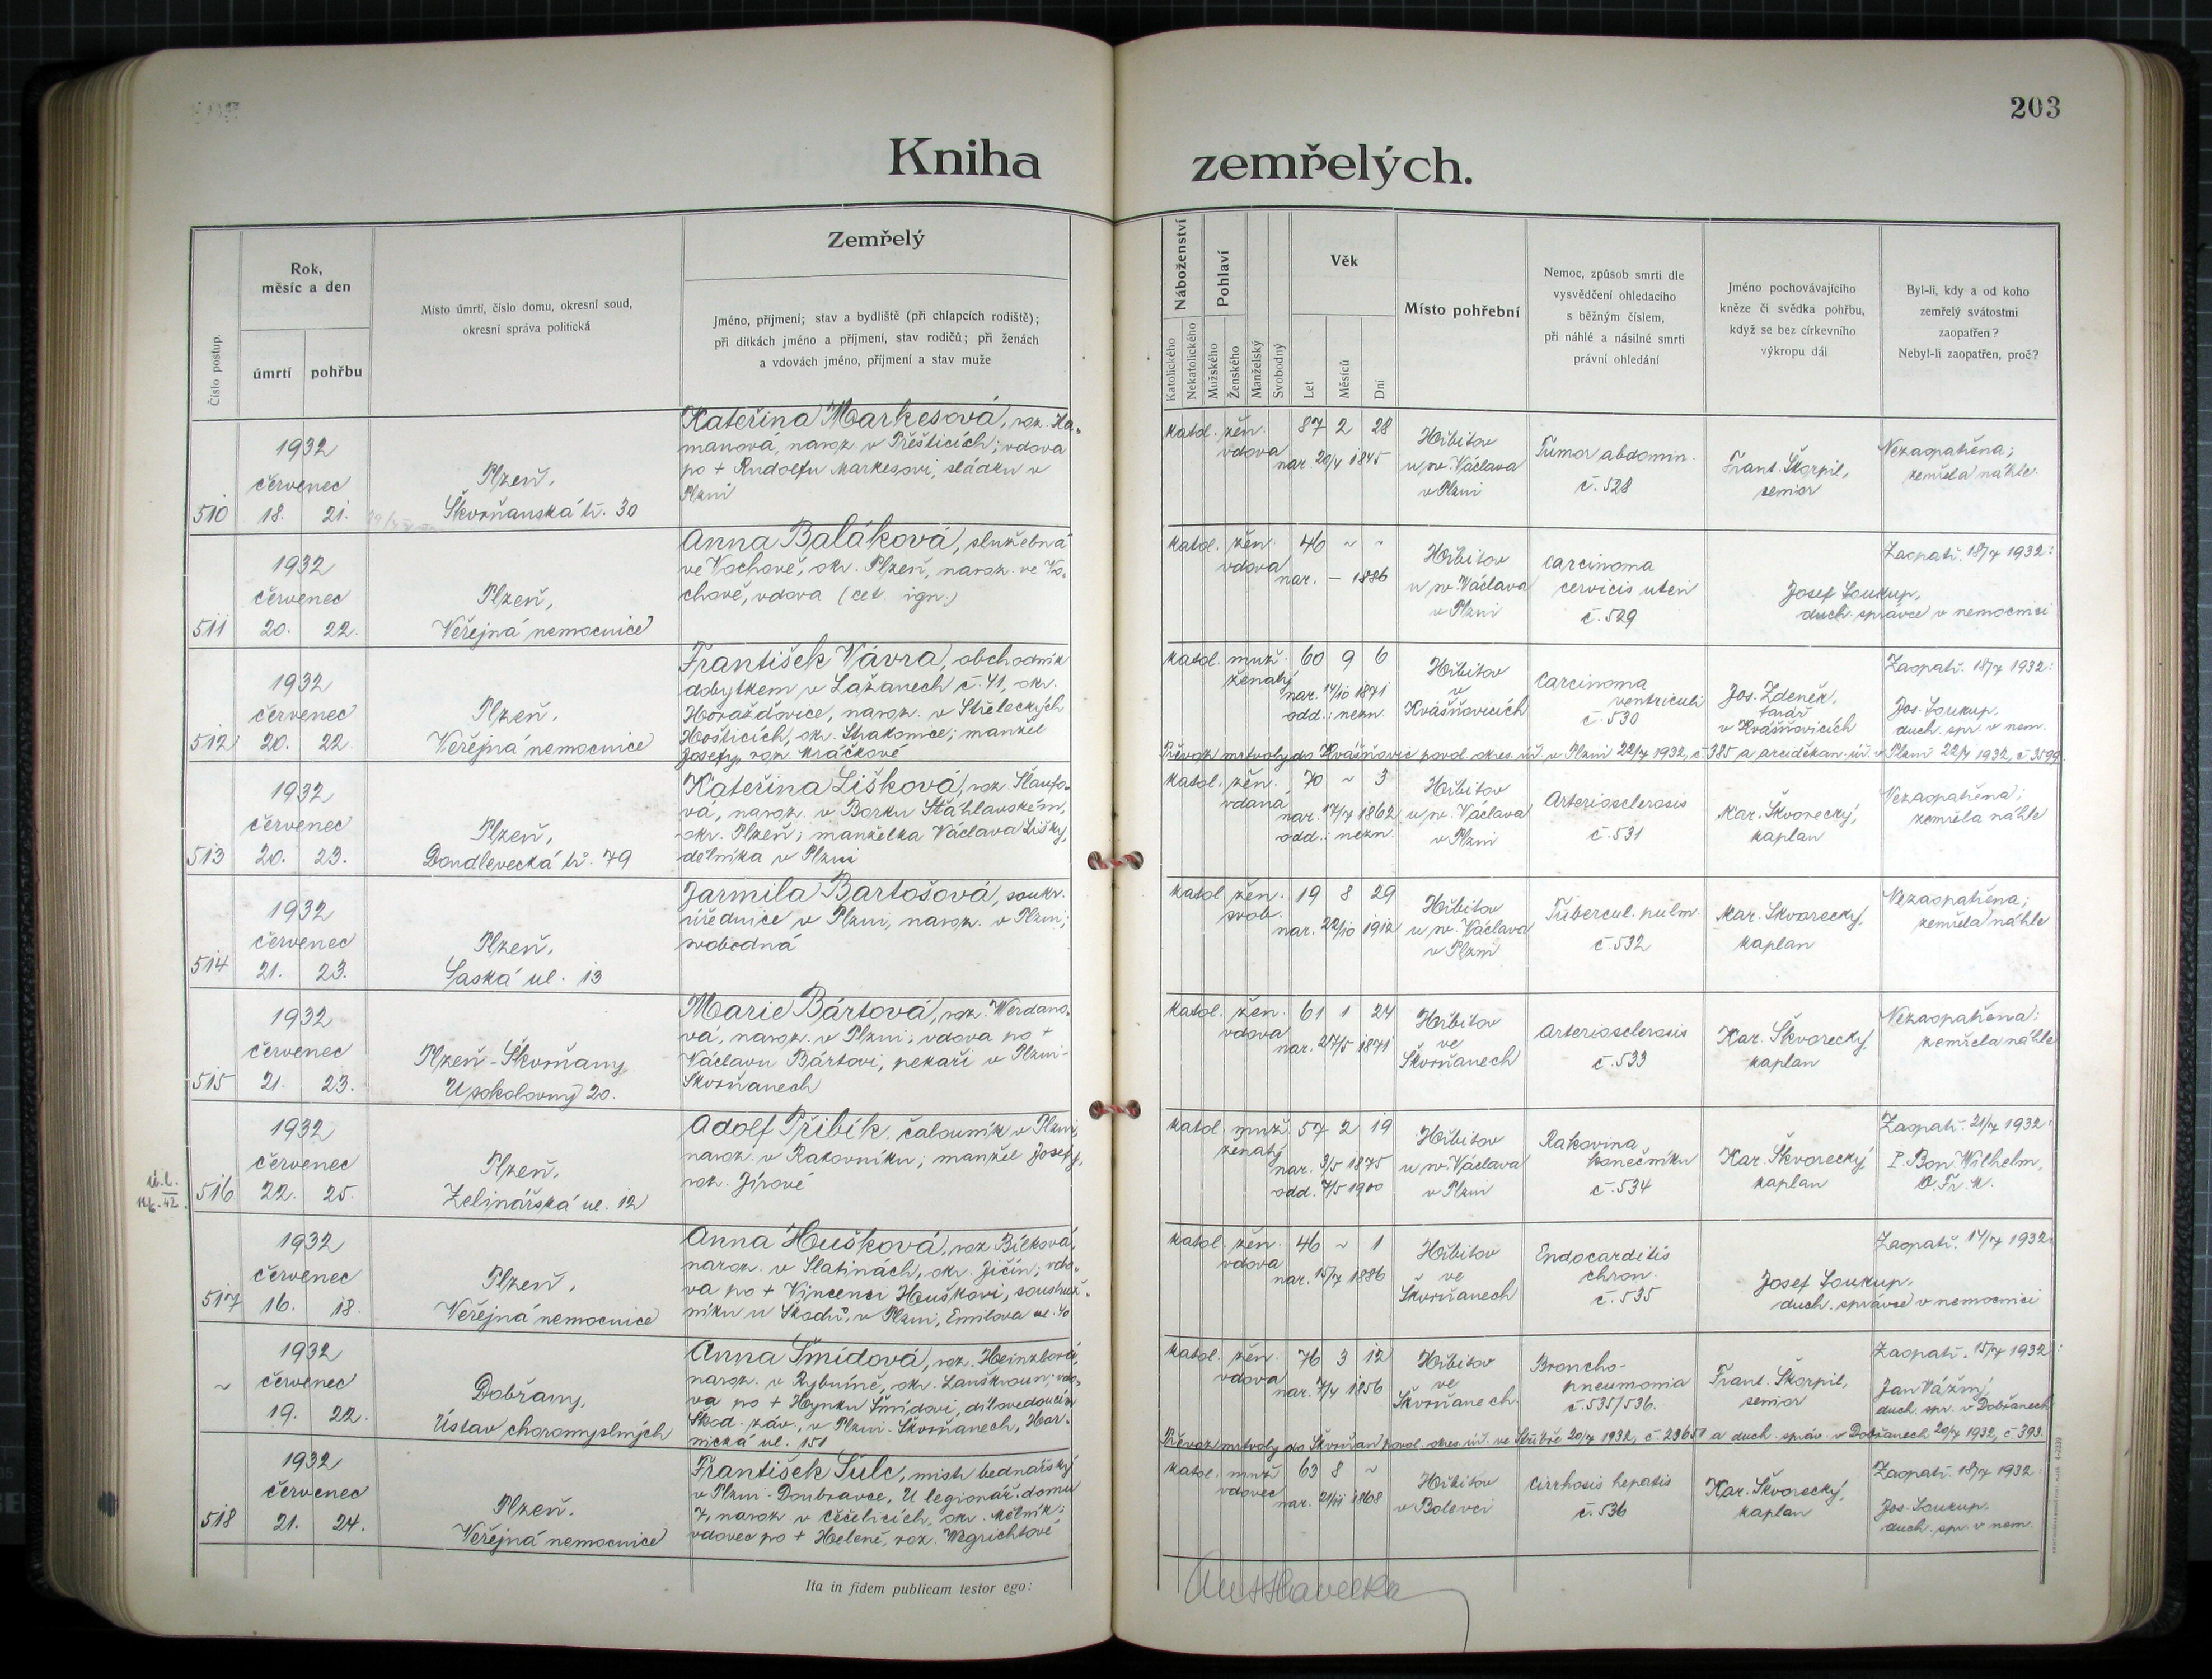 203
Kniha zemřelých.
Číslo postup.
Rok, měsíc a den
úmrtí
pohřbu
Místo úmrtí, číslo domu, okresní soud,
okresní správa politická
Zemřelý
Jméno, příjmení; stav a bydliště (při chlapcích rodiště);
při dítkách jméno a příjmení, stav rodičů; při ženách
a vdovách jméno, příjmení a stav muže
Náboženství
Katolického
Nekatolického
Pohlaví
Mužského
Ženského
Manželský
Svobodný
Věk
Let
Měsíců
Dní
Místo pohřební
Nemoc, způsob smrti dle
vysvědčení ohledacího
s běžným číslem,
při náhlé a násilné smrti
právní ohledání
Jméno pochovávajícího
kněze či svědka pohřbu,
když se bez církevního
výkropu dál
Byl-li, kdy a od koho
zemřelý svátostmi
zaopatřen?
Nebyl-li zaopatřen, proč?
510
1932
červenec
18. 21.
Plzeň,
Škvrňanská tř. 30
Kateřina Markesová, roz. Ha-
manová, naroz. v Přešticích; vdova
po + Rudolfu Markesovi, sládku v
Plzni
katol. žen. 87 2 28
vdova nar. 20/4 1845
Hřbitov
u sv. Václava
v Plzni
Tumor abdomin.
č. 528
Frant. Škorpil,
senior
Nezaopatřena;
zemřela náhle.
511
1932
červenec
20. 22.
Plzeň,
Veřejná nemocnice
Anna Baláková, služebná
ve Vochově, okr. Plzeň, naroz. ve Vo-
chově, vdova (cet. ign.)
katol. žen. 46 ~ ~
vdova nar. – 1886
Hřbitov
u sv. Václava
v Plzni
Carcinoma
cervicis uteri
č. 529
Zaopatř. 18/7 1932:
Josef Soukup,
duch. správce v nemocnici
512
1932
červenec
20. 22.
Plzeň,
Veřejná nemocnice
František Vávra, obchodník
dobytkem v Lažanech č. 41, okr.
Horažďovice, naroz. v Střeleckých
Hošticích, okr. Strakonice; manžel
Josefy, roz. Kráčkové
katol. muž. 60 9 6
ženatý nar. 14/10 1871
odd.: nezn.
Hřbitov
v
Kvášňovicích
Carcinoma
ventriculi
č. 530
Jos. Zdeněk,
farář
v Kvášňovicích
Zaopatř. 18/7 1932:
Jos. Soukup,
duch. spr. v nem.
Převoz mrtvoly do Kvášňovic povol. okres. úř. v Plzni 22/7 1932, č. 385 a arciděkan. úř. v Plzni 22/7 1932, č. 3599.
513
1932
červenec
20. 23.
Plzeň,
Doudlevecká tř. 79
Kateřina Lišková, roz. Šlaufo-
vá, naroz. v Borku Šťáhlavském,
okr. Plzeň; manželka Václava Lišky,
dělníka v Plzni
katol. žen. 70 ~ 3
vdaná nar. 17/7 1862
odd.: nezn.
Hřbitov
u sv. Václava
v Plzni
Arteriosclerosis
č. 531
Kar. Škvorecký,
kaplan
Nezaopatřena;
zemřela náhle
514
1932
červenec
21. 23.
Plzeň,
Saská ul. 13
Jarmila Bartošová, soukr.
úřednice v Plzni, naroz. v Plzni;
svobodná
katol. žen. 19 8 29
svob. nar. 22/10 1912
Hřbitov
u sv. Václava
v Plzni
Tubercul. pulm.
č. 532
Kar. Škvorecký,
kaplan
Nezaopatřena;
zemřela náhle
515
1932
červenec
21. 23.
Plzeň-Škvrňany,
U sokolovny 20.
Marie Bártová, roz. Werdano-
vá, naroz. v Plzni; vdova po +
Václavu Bártovi, pekaři v Plzni-
Škvrňanech
katol. žen. 61 1 24
vdova nar. 27/5 1871
Hřbitov
ve
Škvrňanech
Arteriosclerosis
č. 533
Kar. Škvorecký,
kaplan
Nezaopatřena;
zemřela náhle
516
1932
červenec
22. 25.
Plzeň,
Zelinářská ul. 12
Adolf Přibík, čalouník v Plzni,
naroz. v Rakovníku; manžel Josefy,
roz. Jírové
katol. muž. 57 2 19
ženatý nar. 3/5 1875
odd. 7/5 1900
Hřbitov
u sv. Václava
v Plzni
Rakovina
konečníku
č. 534
Kar. Škvorecký,
kaplan
Zaopatř. 21/7 1932:
P. Bon. Wilhelm,
O. Fr. M.
517
1932
červenec
16. 18.
Plzeň,
Veřejná nemocnice
Anna Hušková, roz. Bílková,
naroz. v Slatinách, okr. Jičín; vdo-
va po + Vincenci Huškovi, soustruž-
níku u Škodů, v Plzni, Emilova ul. 40
katol. žen. 46 ~ 1
vdova nar. 15/7 1886
Hřbitov
ve
Škvrňanech
Endocarditis
chron.
č. 535
Zaopatř. 14/7 1932:
Josef Soukup,
duch. správce v nemocnici
~
1932
červenec
19. 22.
Dobřany,
Ústav choromyslných
Anna Šmídová, roz. Heinzlová,
naroz. v Rybníně, okr. Lanškroun; vdo-
va po + Hynku Šmídovi, dílovedoucím
Škod. záv., v Plzni-Škvrňanech, Hor-
nická ul. 151
katol. žen. 76 3 12
vdova nar. 7/4 1856
Hřbitov
ve
Škvrňanech
Broncho-
pneumonia
č. 535/536.
Frant. Škorpil,
senior
Zaopatř. 15/7 1932:
Jan Vážný,
duch. spr. v Dobřanech
Převoz mrtvoly do Škvrňan povol. okres. úř. ve Stříbře 20/7 1932, č. 29651 a duch. správ. v Dobřanech 20/7 1932, č. 393.
518
1932
červenec
21. 24.
Plzeň,
Veřejná nemocnice
František Šulc, mistr bednářský
v Plzni-Doubravce, U legionář. domů
7, naroz. v Čečelicích, okr. Mělník;
vdovec po + Heleně, roz. Wegrichtové
katol. muž. 63 8 ~
vdovec nar. 21/11 1868
Hřbitov
v Bolevci
Cirrhosis hepatis
č. 536
Kar. Škvorecký,
kaplan
Zaopatř. 18/7 1932:
Jos. Soukup,
duch. spr. v nem.
Ita in fidem publicam testor ego: